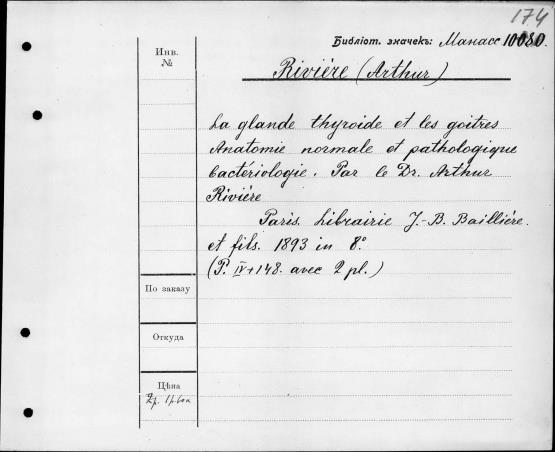 174
Библіот. значекъ: Манасс 10080.
Инв.
№
Riviére (Arthur)
La glande thyroide et les goitres
Anatomie normale et pathologique
bactériologie. Par le Dr. Arthur
Riviére
Paris. Librairie J.-B. Bailliére.
et fils. 1893 in 8.°
(P. IV+148. avec 2 pl.)
По заказу
Откуда
Цѣна